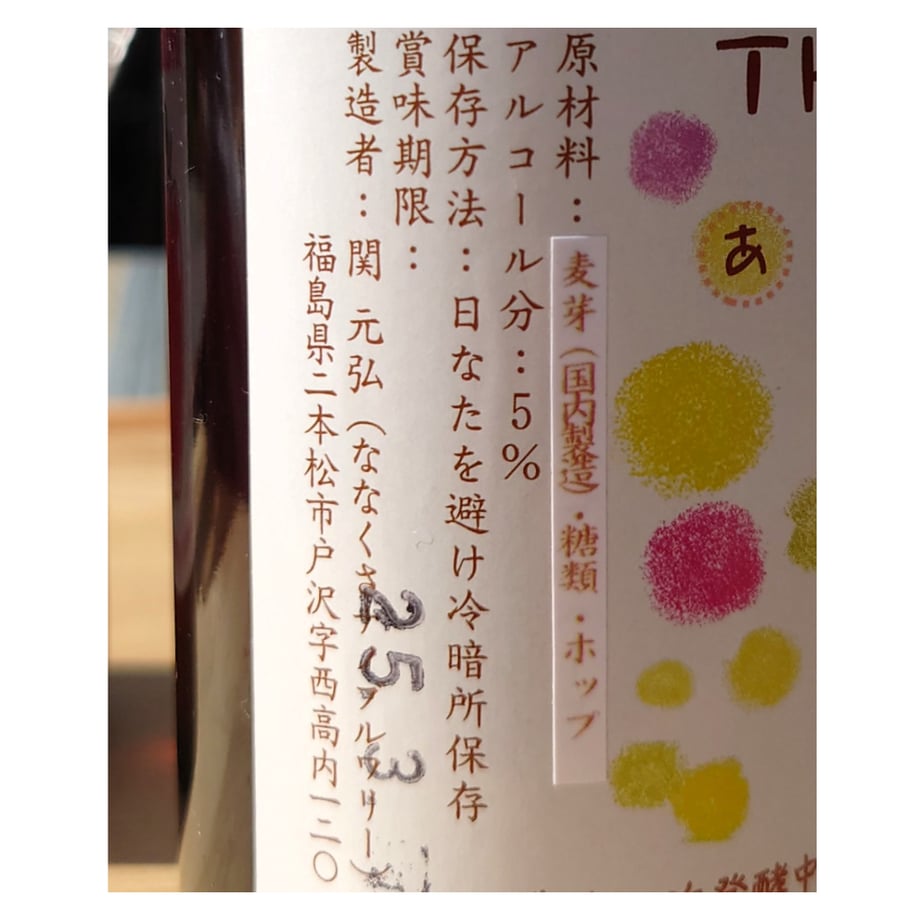 TH
あ
原材料：麦芽（国内製造）・糖類・ホップ
アルコール分：5％
保存方法：日なたを避け冷暗所保存
賞味期限：
25 3
製造者：関 元弘（ななくさナノブルワリー）
福島県二本松市戸沢字西高内一二〇
発酵中